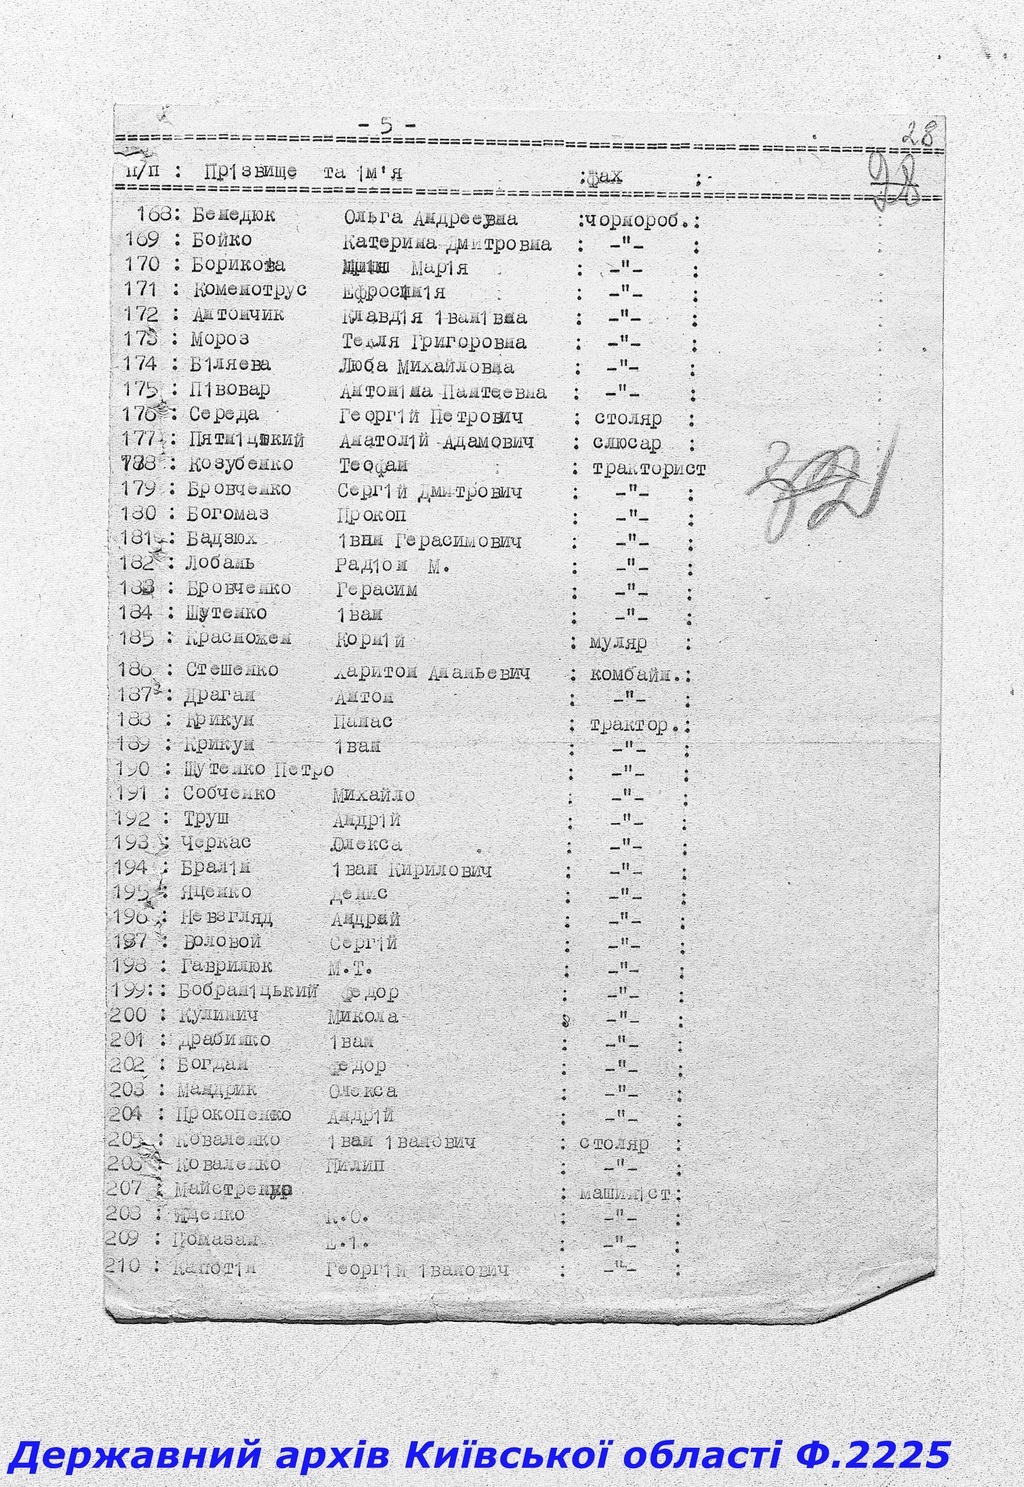 - 5 -
28
п/п : Прізвище та ім'я : фах :
28
168: Бенедюк Ольга Андреевна :чорнороб.:
169 : Бойко Катерина Дмитровна : -"- :
170 : Борикова Марія : -"- :
171 : Коменотрус Ефросинія : -"- :
172 : Антончик Клавдія Іванівна : -"- :
173 : Мороз Текля Григоровна : -"- :
174 : Біляева Люба Михайловна : -"- :
175 : Півовар Антоніна Пантеевна : -"- :
176 : Середа Георгій Петрович : столяр :
177 : Пятніцький Анатолій Адамович : слюсар :
178 : Козубенко Теофан : тракторист
179 : Бровченко Сергій Дмитрович : -"- :
180 : Богомаз Прокоп : -"- :
181 : Бадзюх Іван Герасимович : -"- :
182 : Лобань Радіон М. : -"- :
183 : Бровченко Герасим : -"- :
184 : Шутенко Іван : -"- :
185 : Красножен Корній : муляр :
186 : Стешенко Харитон Ананьевич : комбайн.:
187 : Драган Антон : -"- :
188 : Крикун Панас : трактор.:
189 : Крикун Іван : -"- :
190 : Шутенко Петро : -"- :
191 : Собченко Михайло : -"- :
192 : Труш Андрій : -"- :
193 : Черкас Олекса : -"- :
194 : Бралін Іван Кирилович : -"- :
195 : Яценко Денис : -"- :
196 : Невзгляд Андрій : -"- :
197 : Боловой Сергій : -"- :
198 : Гаврилюк М.Т. : -"- :
199 : Бобраніцький Федор : -"- :
200 : Кулинич Микола : -"- :
201 : Драбинко Іван : -"- :
202 : Богдан Федор : -"- :
203 : Мандрик Олекса : -"- :
204 : Прокопенко Андрій : -"- :
205 : Коваленко Іван Іванович : столяр :
206 : Коваленко Пилип : -"- :
207 : Майстренко : машиніст:
208 : Яценко К.О. : -"- :
209 : Помазан : -"- :
210 : Капотін Георгій Іванович : -"- :
Державний архів Київської області Ф.2225